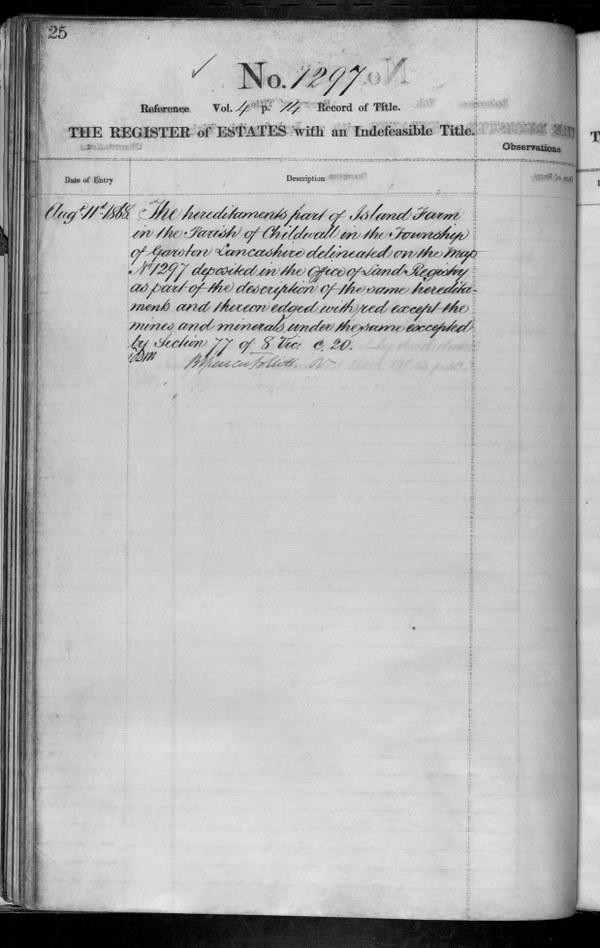 25
No. 1297
Reference Vol. 4 p. 14 Record of Title.
THE REGISTER of ESTATES with an Indefeasible Title.
Observations
Date of Entry
Description
Augt 11th 1868
The hereditaments part of Island Farm
in the Parish of Childwall in the Township
of Garston Lancashire delineated on the Map
No 1297 deposited in the Office of Land Registry
as part of the description of the same heredita-
ments and thereon edged with red except the
mines and minerals under the same excepted
by Section 77 of 8 Vic: c. 20.